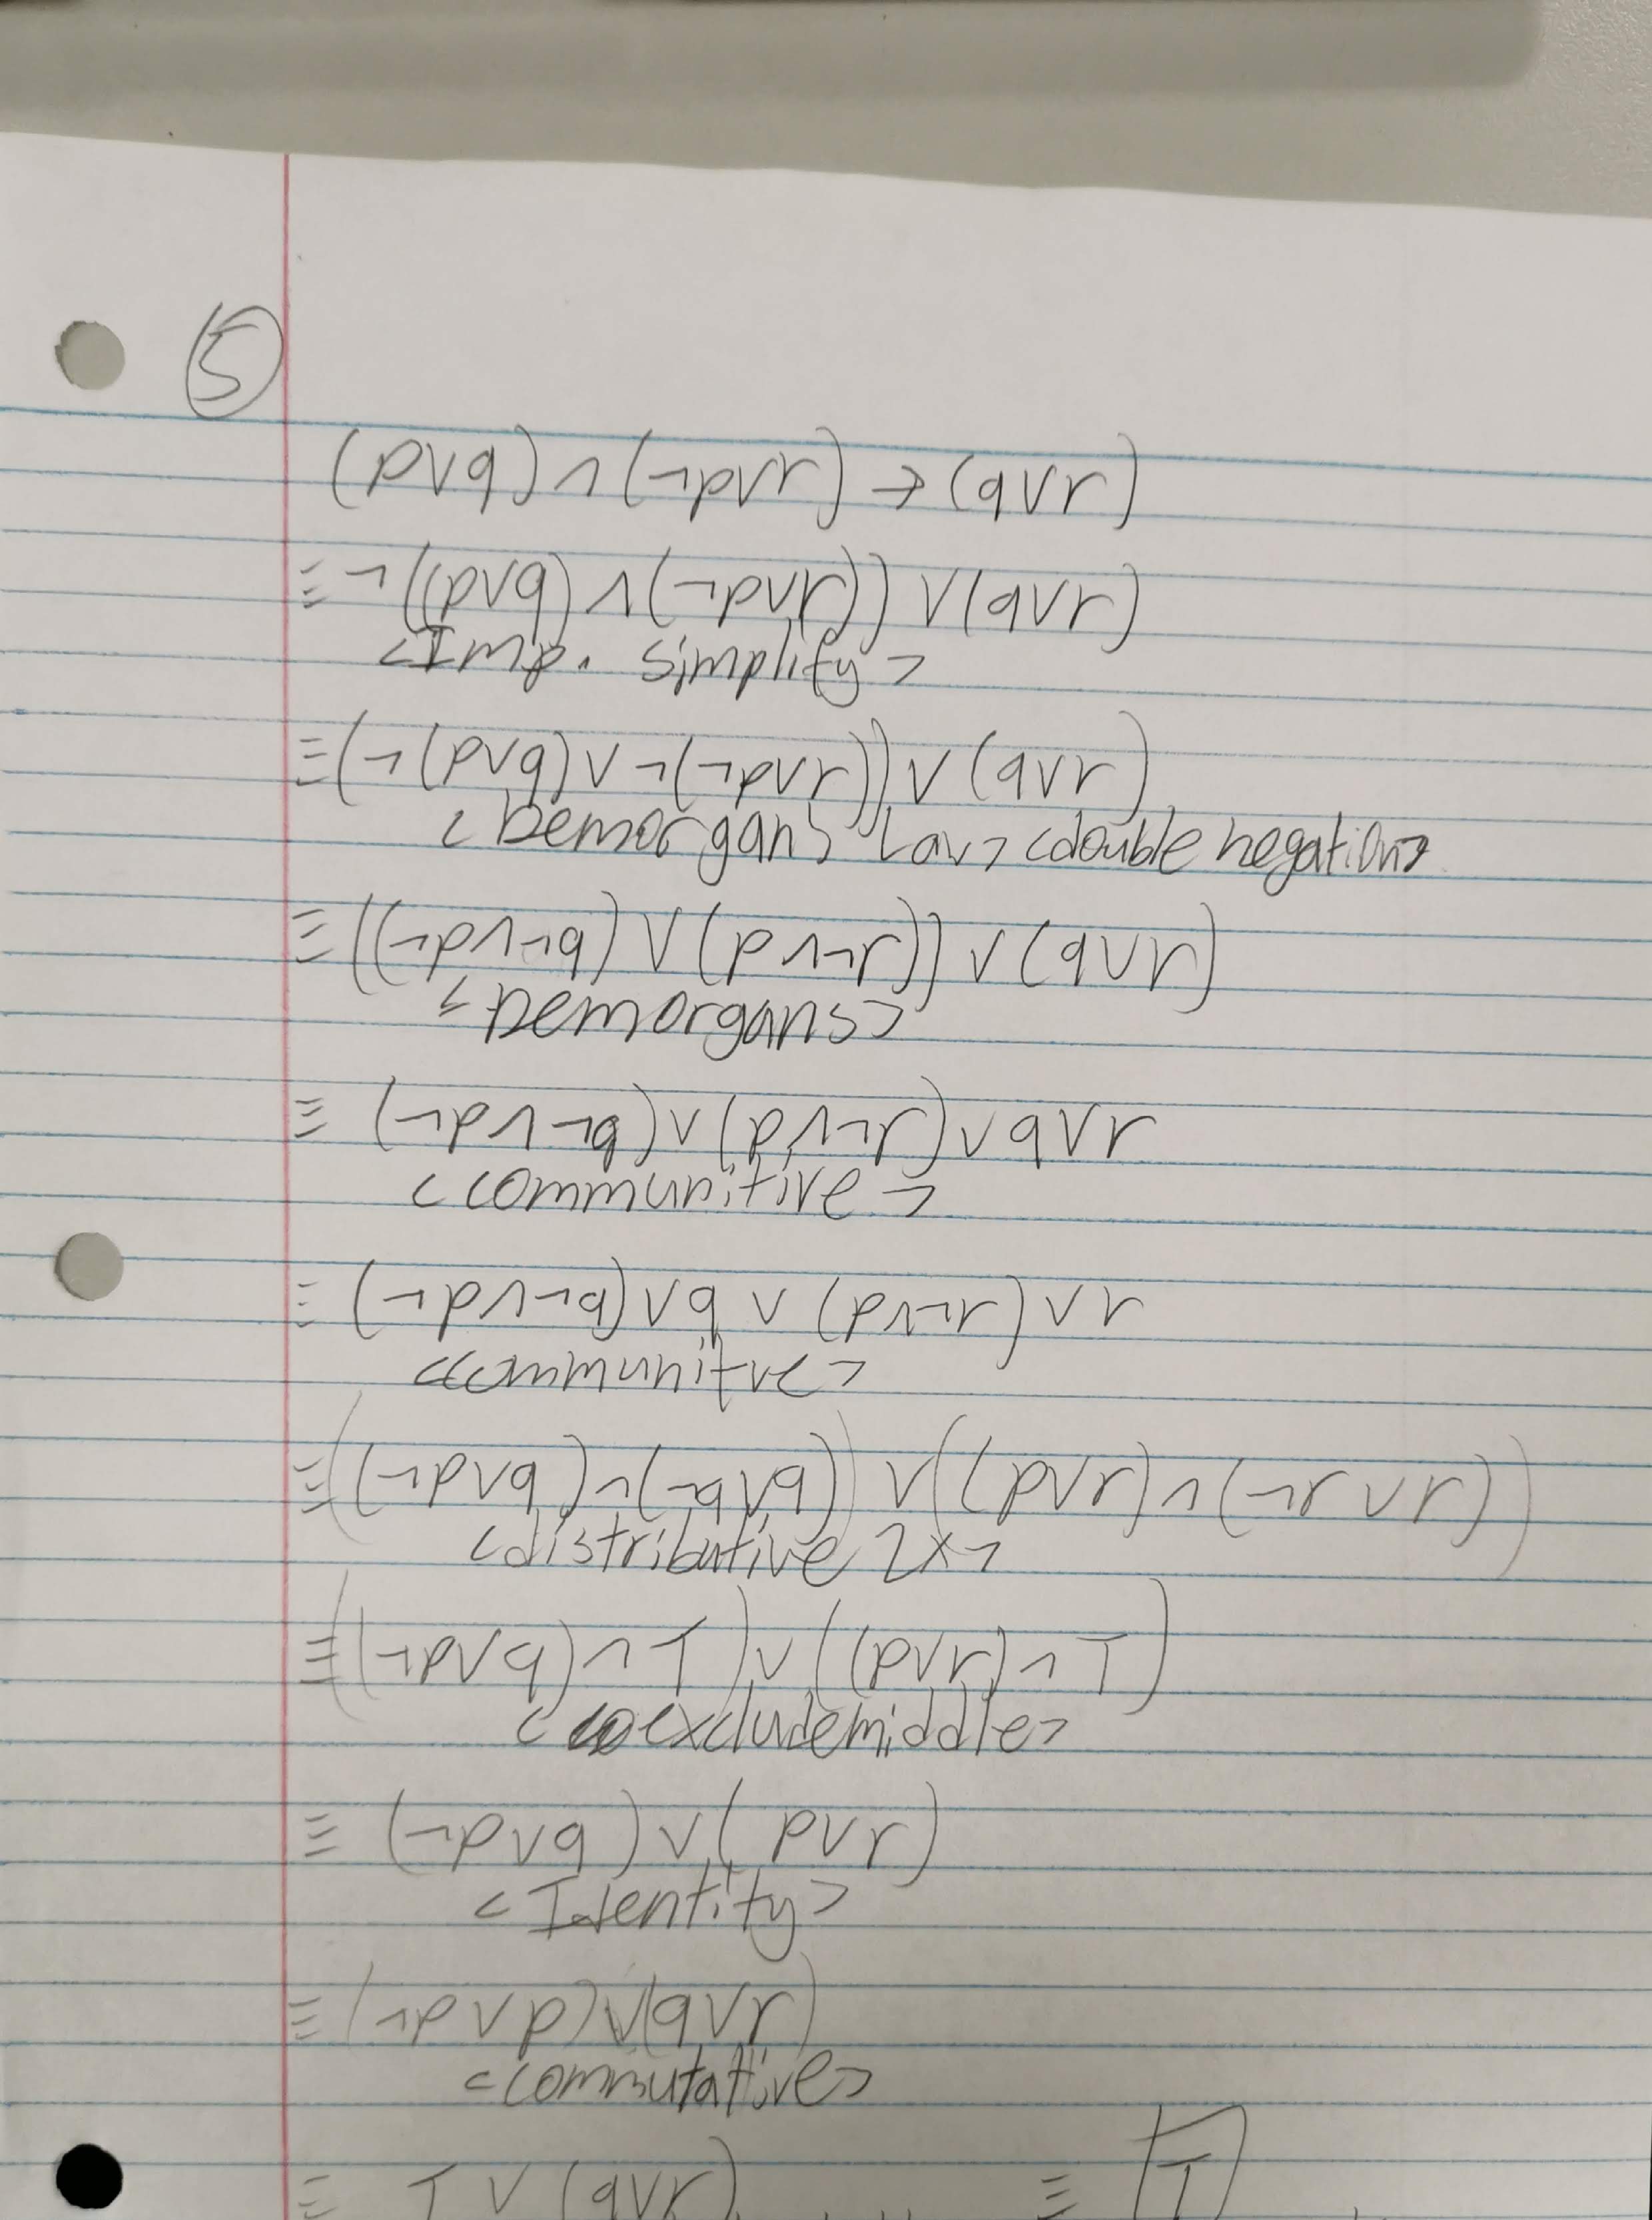 5
(p∨q)∧(¬p∨r)→(q∨r)
≡¬((p∨q)∧(¬p∨r))∨(q∨r)
<Imp. simplify>
≡(¬(p∨q)∨¬(¬p∨r))∨(q∨r)
<Demorgans Law><double negation>
≡((¬p∧¬q)∨(p∧¬r))∨(q∨r)
<Demorgans>
≡(¬p∧¬q)∨(p∧¬r)∨q∨r
<communitive>
≡(¬p∧¬q)∨q∨(p∧¬r)∨r
<communitive>
≡((¬p∨q)∧(¬q∨q))∨((p∨r)∧(¬r∨r))
<distributive 2x>
≡((¬p∨q)∧T)∨((p∨r)∧T)
<excludemiddle>
≡(¬p∨q)∨(p∨r)
<Identity>
≡(¬p∨p)∨(q∨r)
<commutative>
≡T∨(q∨r) ≡ T